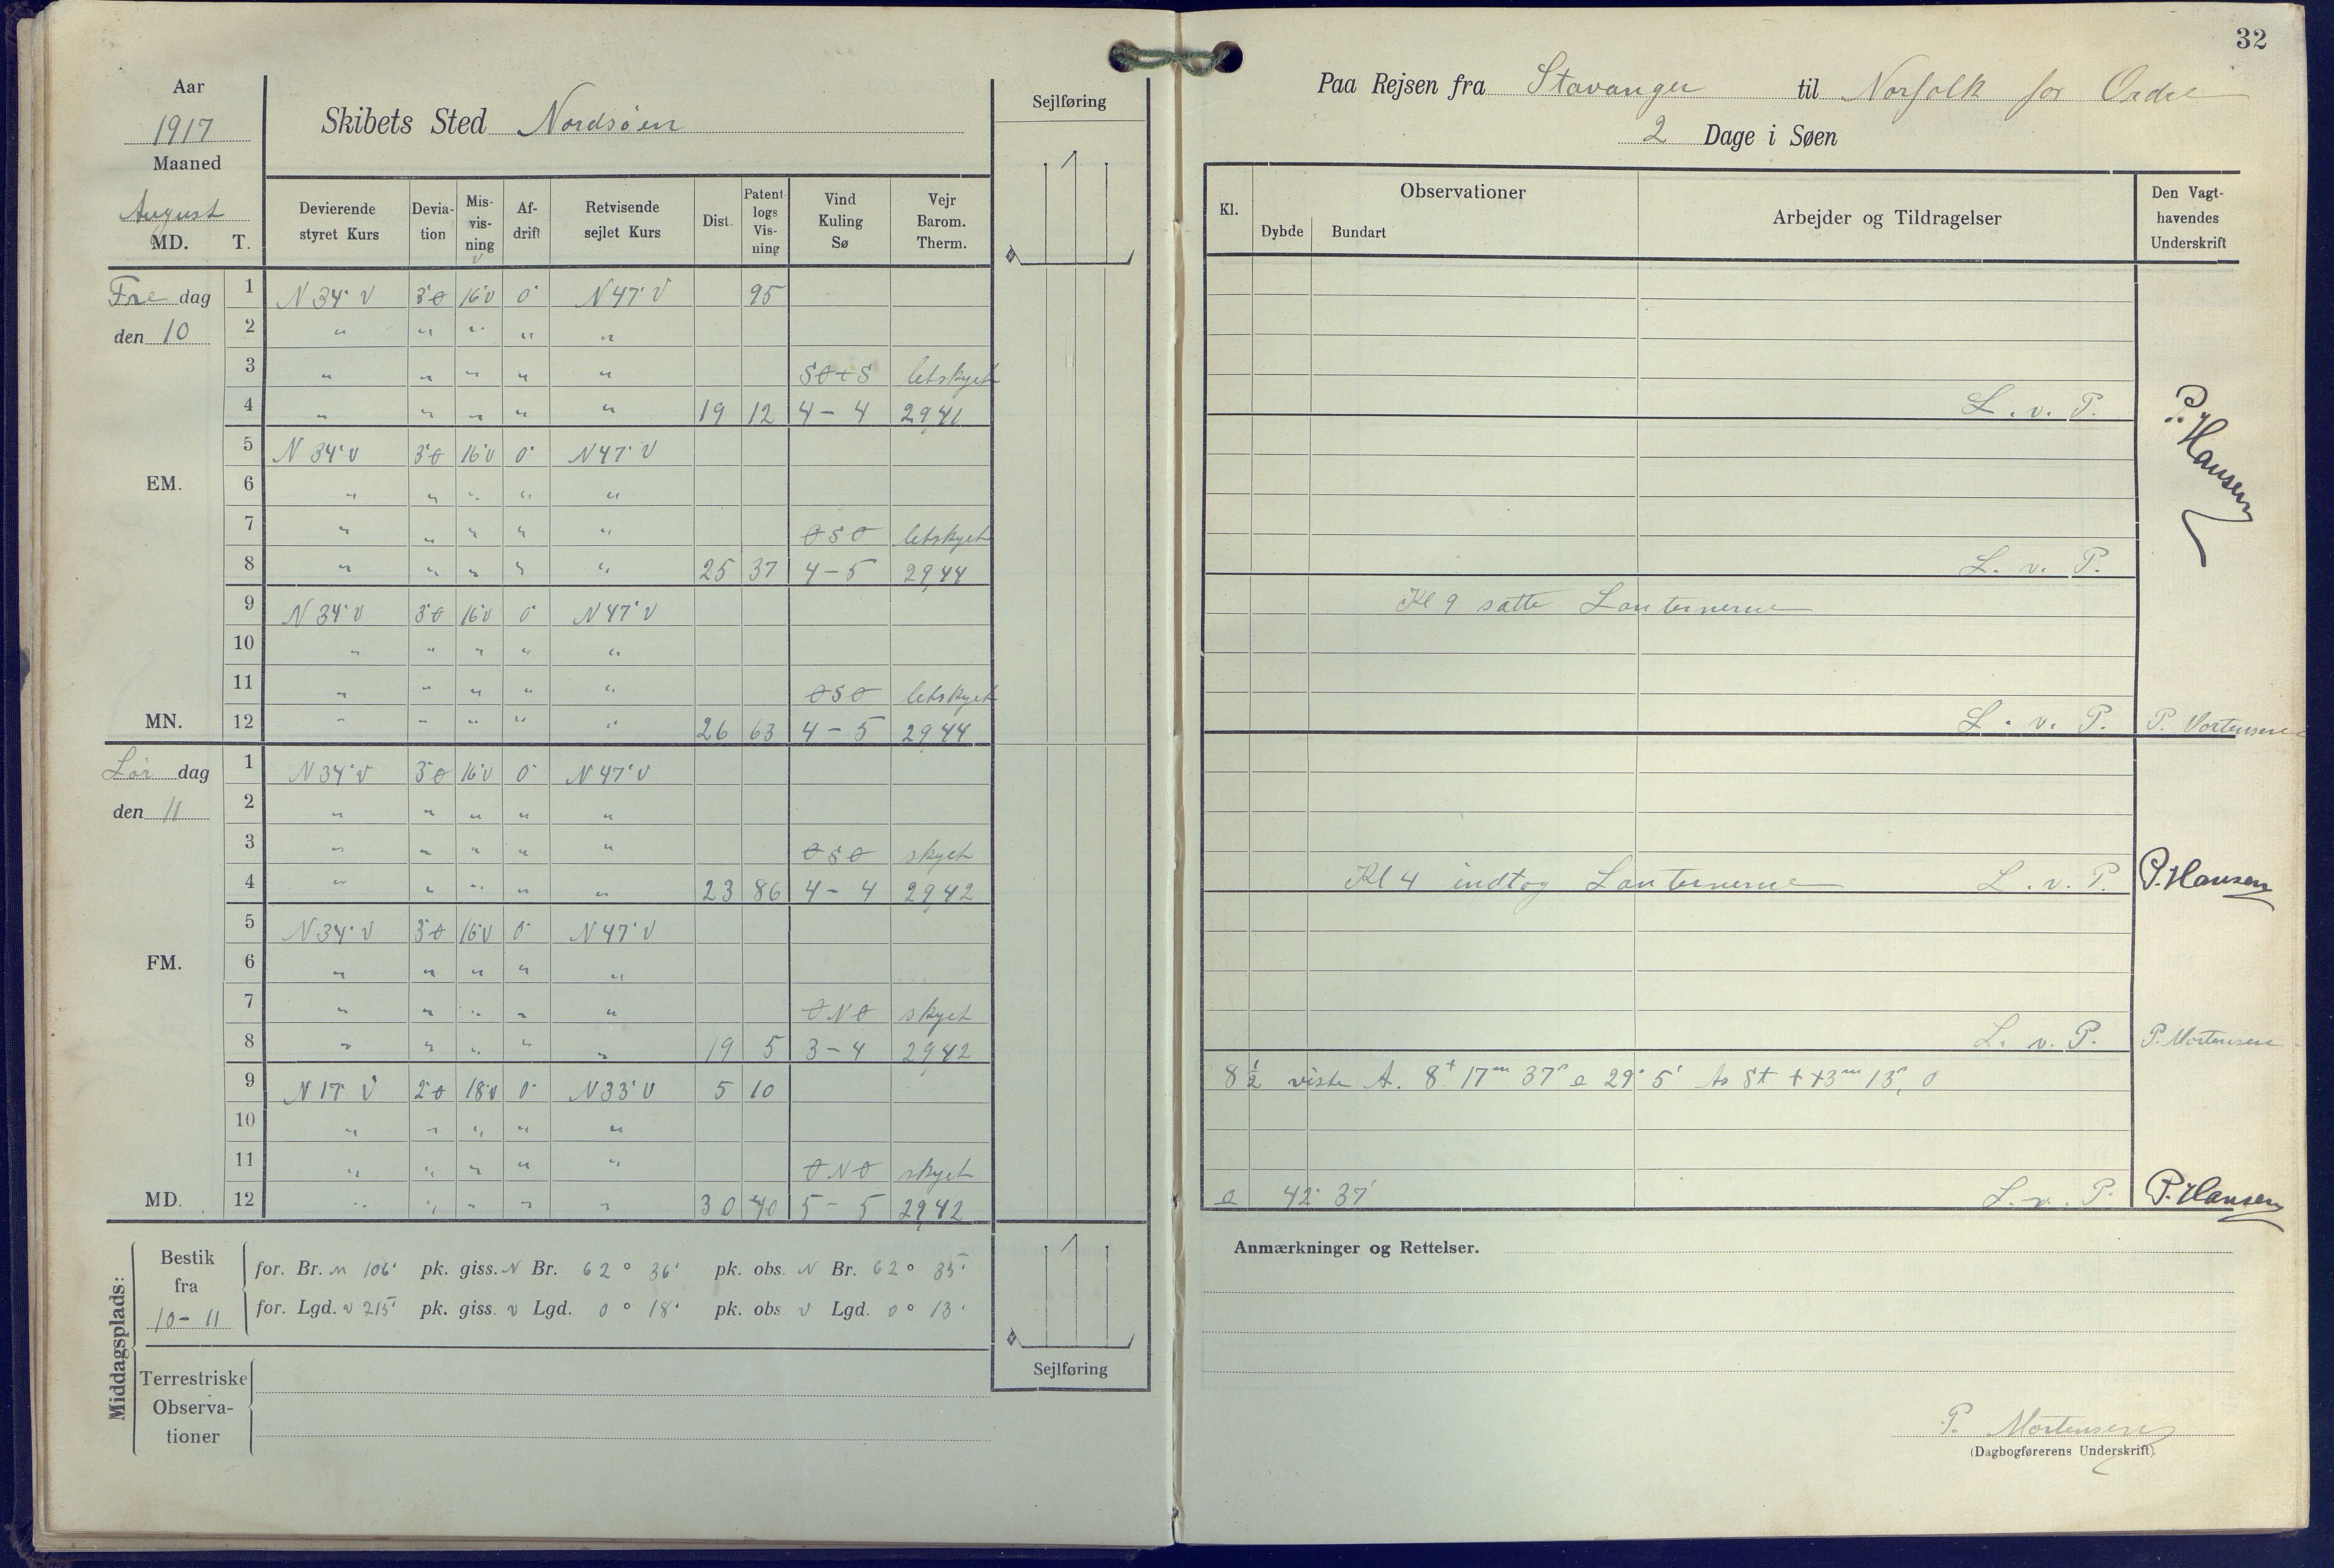 32
Aar
1917
Maaned
August
MD. T.
Skibets Sted Nordsøen
Sejlføring
Devierende styret Kurs | Devia-tion | Mis-vis-ning v | Af-drift | Retvisende sejlet Kurs | Dist. | Patent logs Vis-ning | Vind Kuling Sø | Vejr Barom. Therm.
Fre dag 1 N 34° V 3°Ø 16°V 0° N 47° V 95
den 10 2 " " " " "
3 " " " " " SØtS letskyet
4 " " " " " 19 12 4 – 4 29,41
5 N 34° V 3°Ø 16°V 0° N 47° V
EM. 6 " " " " "
7 " " " " " ØSØ letskyet
8 " " " " " 25 37 4 – 5 29,44
9 N 34° V 3°Ø 16°V 0° N 47° V
10 " " " " "
11 " " " " " ØSØ letskyet
MN. 12 " " " " " 26 63 4 – 5 29,44
Lør dag 1 N 34° V 3°Ø 16°V 0° N 47° V
den 11 2 " " " " "
3 " " " " " ØSØ skyet
4 " " " " " 23 86 4 – 4 29,42
5 N 34° V 3°Ø 16°V 0° N 47° V
FM. 6 " " " " "
7 " " " " " ØNØ skyet
8 " " " " " 19 5 3 – 4 29,42
9 N 17° V 2°Ø 18°V 0° N 33° V 5 10
10 " " " " "
11 " " " " " ØNØ skyet
MD. 12 " " " " " 30 40 5 – 5 29,42
Middagsplads:
Bestik fra 10 – 11
for. Br. N 106' pk. giss. N Br. 62° 36' pk. obs. N Br. 62° 35'
for. Lgd. v 215' pk. giss. v Lgd. 0° 18' pk. obs. v Lgd. 0° 13'
Terrestriske Observa-tioner
Sejlføring
Paa Rejsen fra Stavanger til Norfolk for Ordre
2 Dage i Søen
Kl. | Observationer | Dybde | Bundart | Arbejder og Tildragelser | Den Vagt-havendes Underskrift
L. v. P.
P. Hansen
L. v. P.
Kl 9 satte Lanternerne
L. v. P. P. Mortensen
Kl 4 indtog Lanternerne L. v. P. P. Hansen
L. v. P. P. Mortensen
8 1/2 viste A. 8 17m 37s 29° 5'
42° 37' L. v. P. P. Hansen
Anmærkninger og Rettelser.
P. Mortensen
(Dagbogførerens Underskrift).